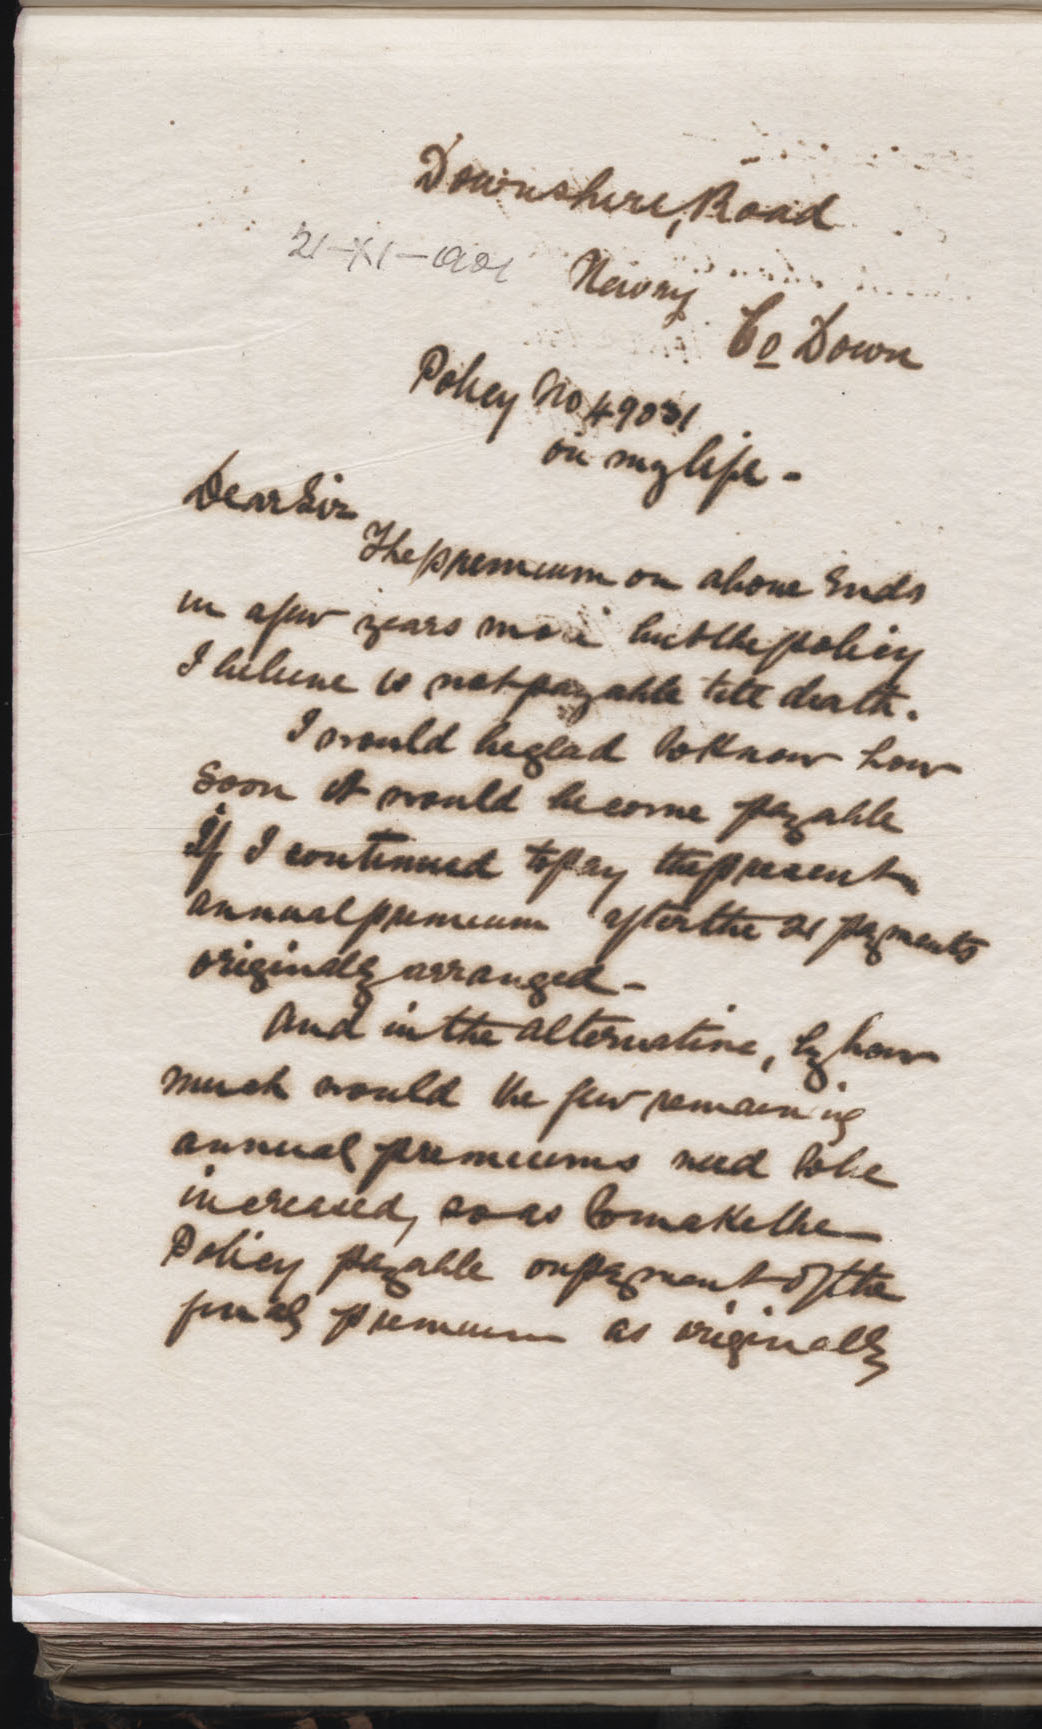 Downshire, Road
21-XI-1901
Newry
Co Down
Policy No 49031
on my life -
Dear Sir
The premium on above Ends
in a few years more but the policy
I believe is not payable till death.
I would be glad to Know how
Soon it would become payable
If I continued to pay the present
annual premium after the 21 payments
originally arranged -
And in the alternative, by how
much would the few remaining
annual premiums need to be
increased, so as to make the
Policy payable on payment of the
final premium as originally